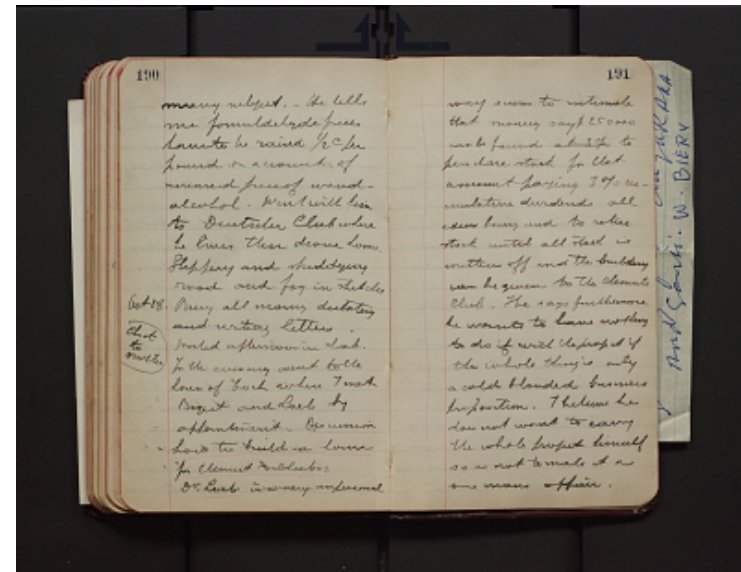 190
money subject. - He tells
me formaldehyde prices
have to be raised 1/2 c per
pound on account of
increased price of wood-
alcohol. Went with him
to Deutscher Club where
he lives then drove home.
Slippery and
road and fog in stretches
Oct 28. Busy all morning dictating
and writing letters.
afternoon in lab.
In the evening went to the
house of where I met
and Loeb by
appointment. Discussion
how to build a home
for Chemist Club
Dr. Loeb in a very impersonal
Chat
to
191
way seems to intimate
that money say $250000
can be found at 3% to
purchase stock for that
amount paying 3% cu-
mulative dividends all
being used to retire
stock until all stock is
written off and the building
can be given to the Chemists
Club. He says furthermore
he wants to have nothing
to do with the project if
the whole thing is only
a cold blooded business
proposition. I believe he
does not want to carry
the whole project himself
so as not to make it a
one mans affair.
W. BIERY